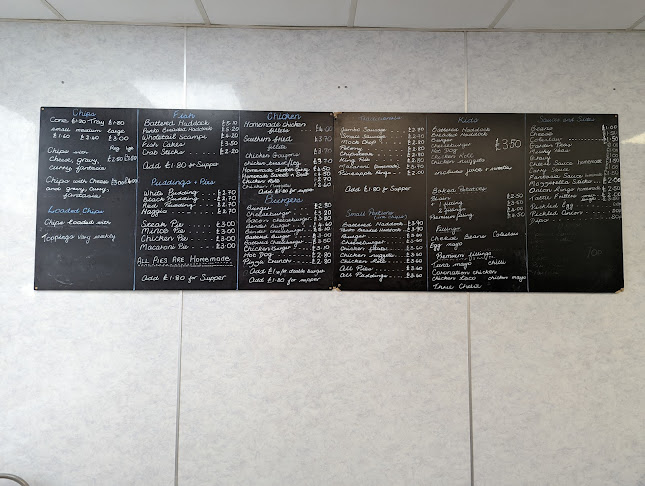 Chips
Cone £1.20 Tray £1.80
small medium large
£1.60 £2.60 £3.00
Chips with Reg Lge
cheese, gravy, £2.50
curry, fantasia
Chips with Cheese £3.00
and gravy, curry,
fantasia
Loaded Chips
Chips Loaded with
Toppings vary weekly
Fish
Battered Haddock £5.10
Panko Breaded Haddock £5.20
Wholetail Scampi £6.20
Fish Cakes £3.50
Crab Sticks £2.20
Add £1.80 for Supper
Puddings + Pies
White Pudding £2.70
Black Pudding £2.70
Red Pudding £2.70
Haggis £2.70
Steak Pie £3.00
Mince Pie £3.00
Chicken Pie £3.00
Macaroni Pie £3.00
All Pies are Homemade
Add £1.80 for Supper
Chicken
Homemade chicken
fillets £4.00
Southern fried
fillets £3.70
Chicken Goujons £3.70
Chicken breast/leg £3.70
Homemade chicken burger
Chicken Nuggets £2.60
Burgers
Burger £2.80
Cheeseburger £3.20
Bacon cheeseburger
Battered Burger £3.00
Battered Cheeseburger £3.50
Chickenburger £3.10
Hot Dog £2.80
Pizza Crunch £2.80
Add £1.70 for double burger
Add £1.80 for supper
Traditionals
Jumbo Sausage £2.80
Small Sausage
Mock Chop
King Rib
Macaroni (homemade)
Pineapple Ring £2.00
Add £1.80 for Supper
Small Portions
Battered Haddock £3.90
Panko Breaded Haddock £3.90
Burger £3.60
Cheeseburger
Chicken fillets
Chicken nuggets £3.60
Chicken Roll £3.60
All Pies £3.60
All Puddings £3.60
Kids
Battered Haddock
Breaded Haddock
Burger
Cheeseburger £3.50
Hot Dog
Chicken Roll
Chicken nuggets
includes juice + sweetie
Baked Potatoes
Plain
1 filling
2 fillings
Premium filling
Fillings
Cheese Beans Coleslaw
Egg mayo
Premium fillings
Tuna mayo chilli
Coronation chicken
Chicken Taco chicken mayo
Three Cheese
Sauces and Sides
Beans £1.00
Cheese
Coleslaw
Garden Peas
Mushy Peas
Gravy
Chilli Sauce homemade
Curry Sauce
Fantasia Sauce
Mozzarella Sticks
Onion Rings homemade
Pickled Egg
Pickled Onion
Dips